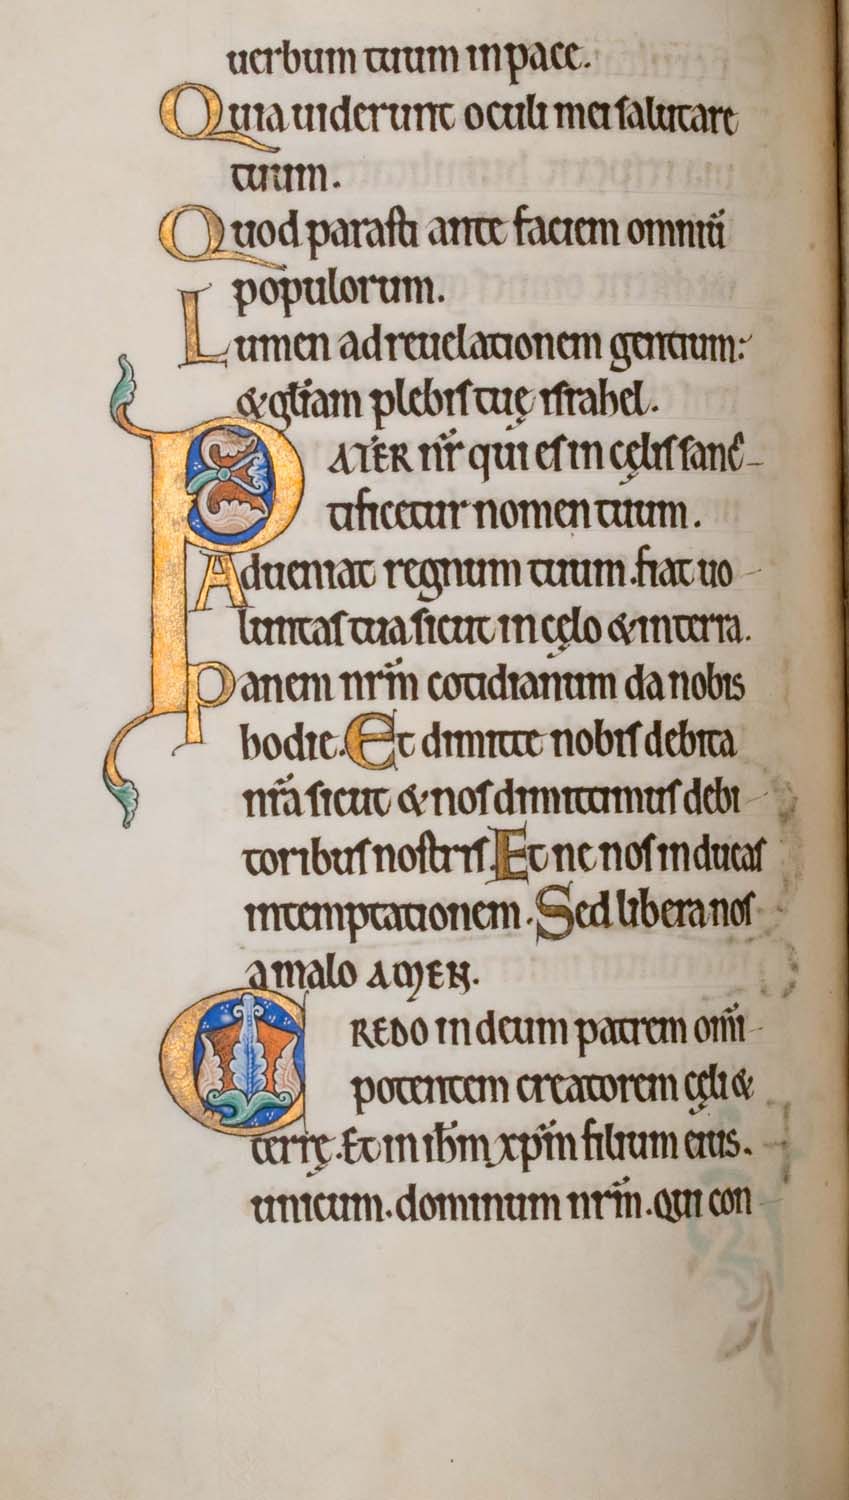 uerbum tuum in pace.
Quia uiderunt oculi mei salutare
tuum.
Quod parasti ante faciem omniū
populorum.
Lumen ad reuelationem gentium:
&głiam plebis tuę israhel.
PATER nr̄ qui es in cęlis sanc̄-
tificetur nomen tuum.
Adueniat regnum tuum. fiat uo-
luntas tua sicut in cęlo & in terra.
Panem nrm̄ cotidianum da nobis
hodie. Et dimitte nobis debita
nrā sicut & nos dimittimus debi-
toribus nostris. Et ne nos inducas
in temptationem. Sed libera nos
a malo AMEN.
CREDO in deum patrem om̄i-
potentem creatorem cęli &
terrę. Et in ihm̄ xpm̄ filium eius.
unicum. dominum nrm̄. qui con